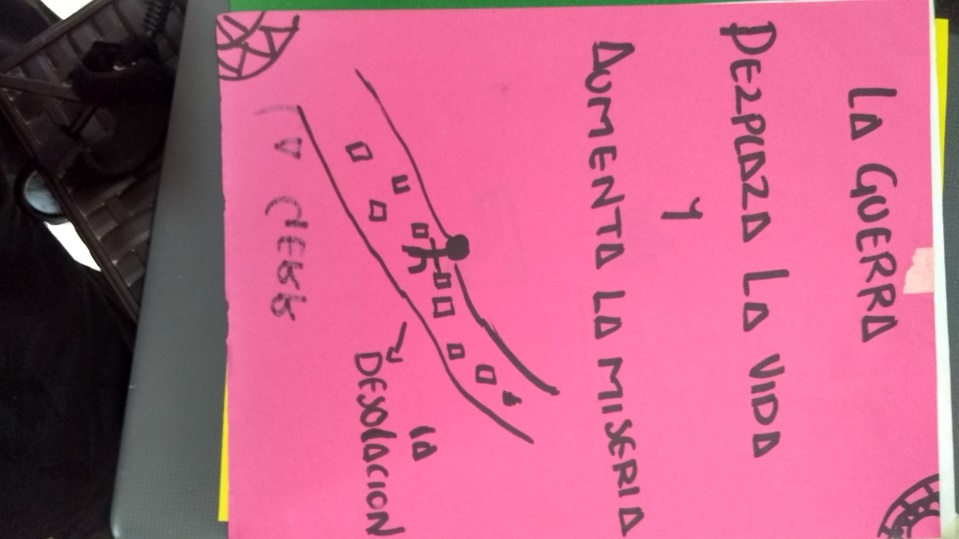 LA GUERRA
DEZPLAZA LA VIDA
Y
AUMENTA LA MISERIA
la
DESOLACION